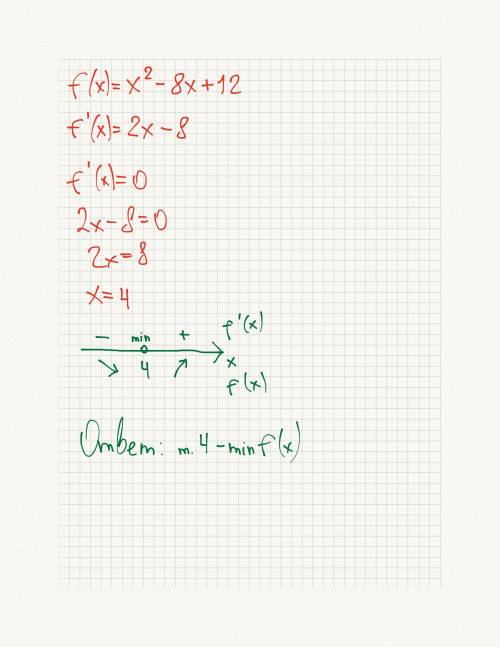 f(x)=x²-8x+12
f'(x)=2x-8
f'(x)=0
2x-8=0
2x=8
x=4
- min + f'(x)
↘ 4 ↗ x
f(x)
Ответ: т. 4 - min f(x)